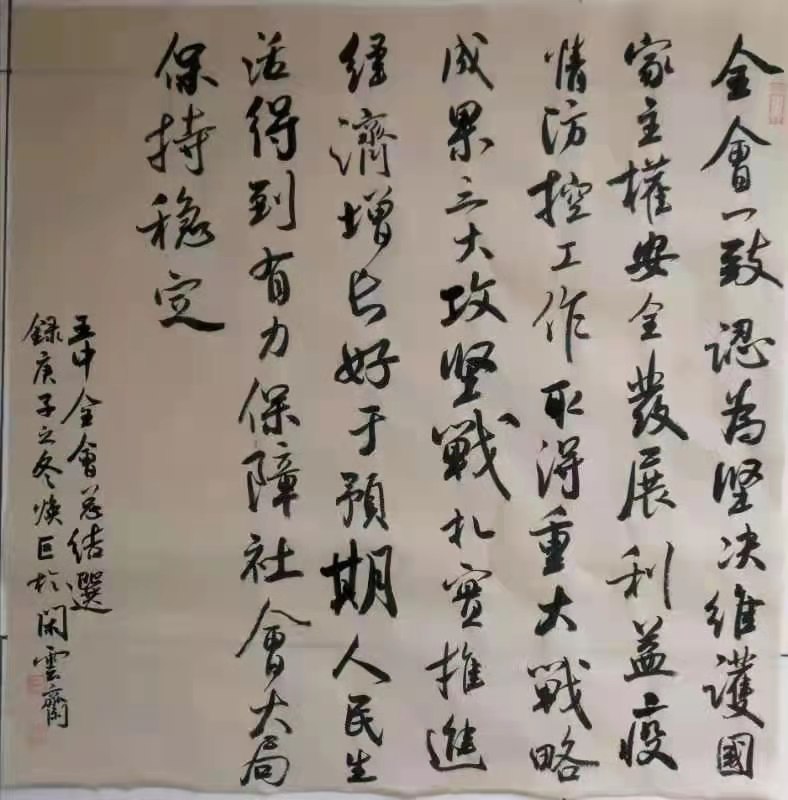 全會一致認為坚决维護國
家主權安全發展利益疫
情防控工作取得重大戰略
成果三大攻坚戰扎實推進
經濟增长好于預期人民生
活得到有力保障社會大局
保持穩定
五中全會总结選
錄庚子之冬焕巨於閑雲齋